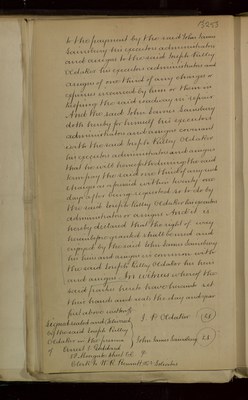 to the payment by the said John James
Sainsbury his executors administrators
and assigns to the said Joseph Pelley
Oldaker his executors administrators and
assigns of one third of any charges or
expenses incurred by him or them in
keeping the said roadway in repair
And the said John James Sainsbury
doth hereby for himself his executors
administrators and assigns covenant
with the said Joseph Pelley Oldaker
his executors administrators and assigns
that he will
pay the said one third of any such
charges or expenses within twenty one
days after being requested so to do by
the said Joseph Pelley Oldaker his executors
administrators or assigns And it is
hereby declared that the right of way
hereinbefore granted shall be used and
enjoyed by the said John James Sainsbury
his heirs and assigns in common with
the said Joseph Pelley Oldaker his heirs
and assigns In witness whereof the
said parties hereto have hereunto set
their hands and seals the day and year
first above written
Signed sealed and delivered
by the said Joseph Pelley
Oldaker in the presence
of
J. P. Oldaker
John James Sainsbury
Clerk to